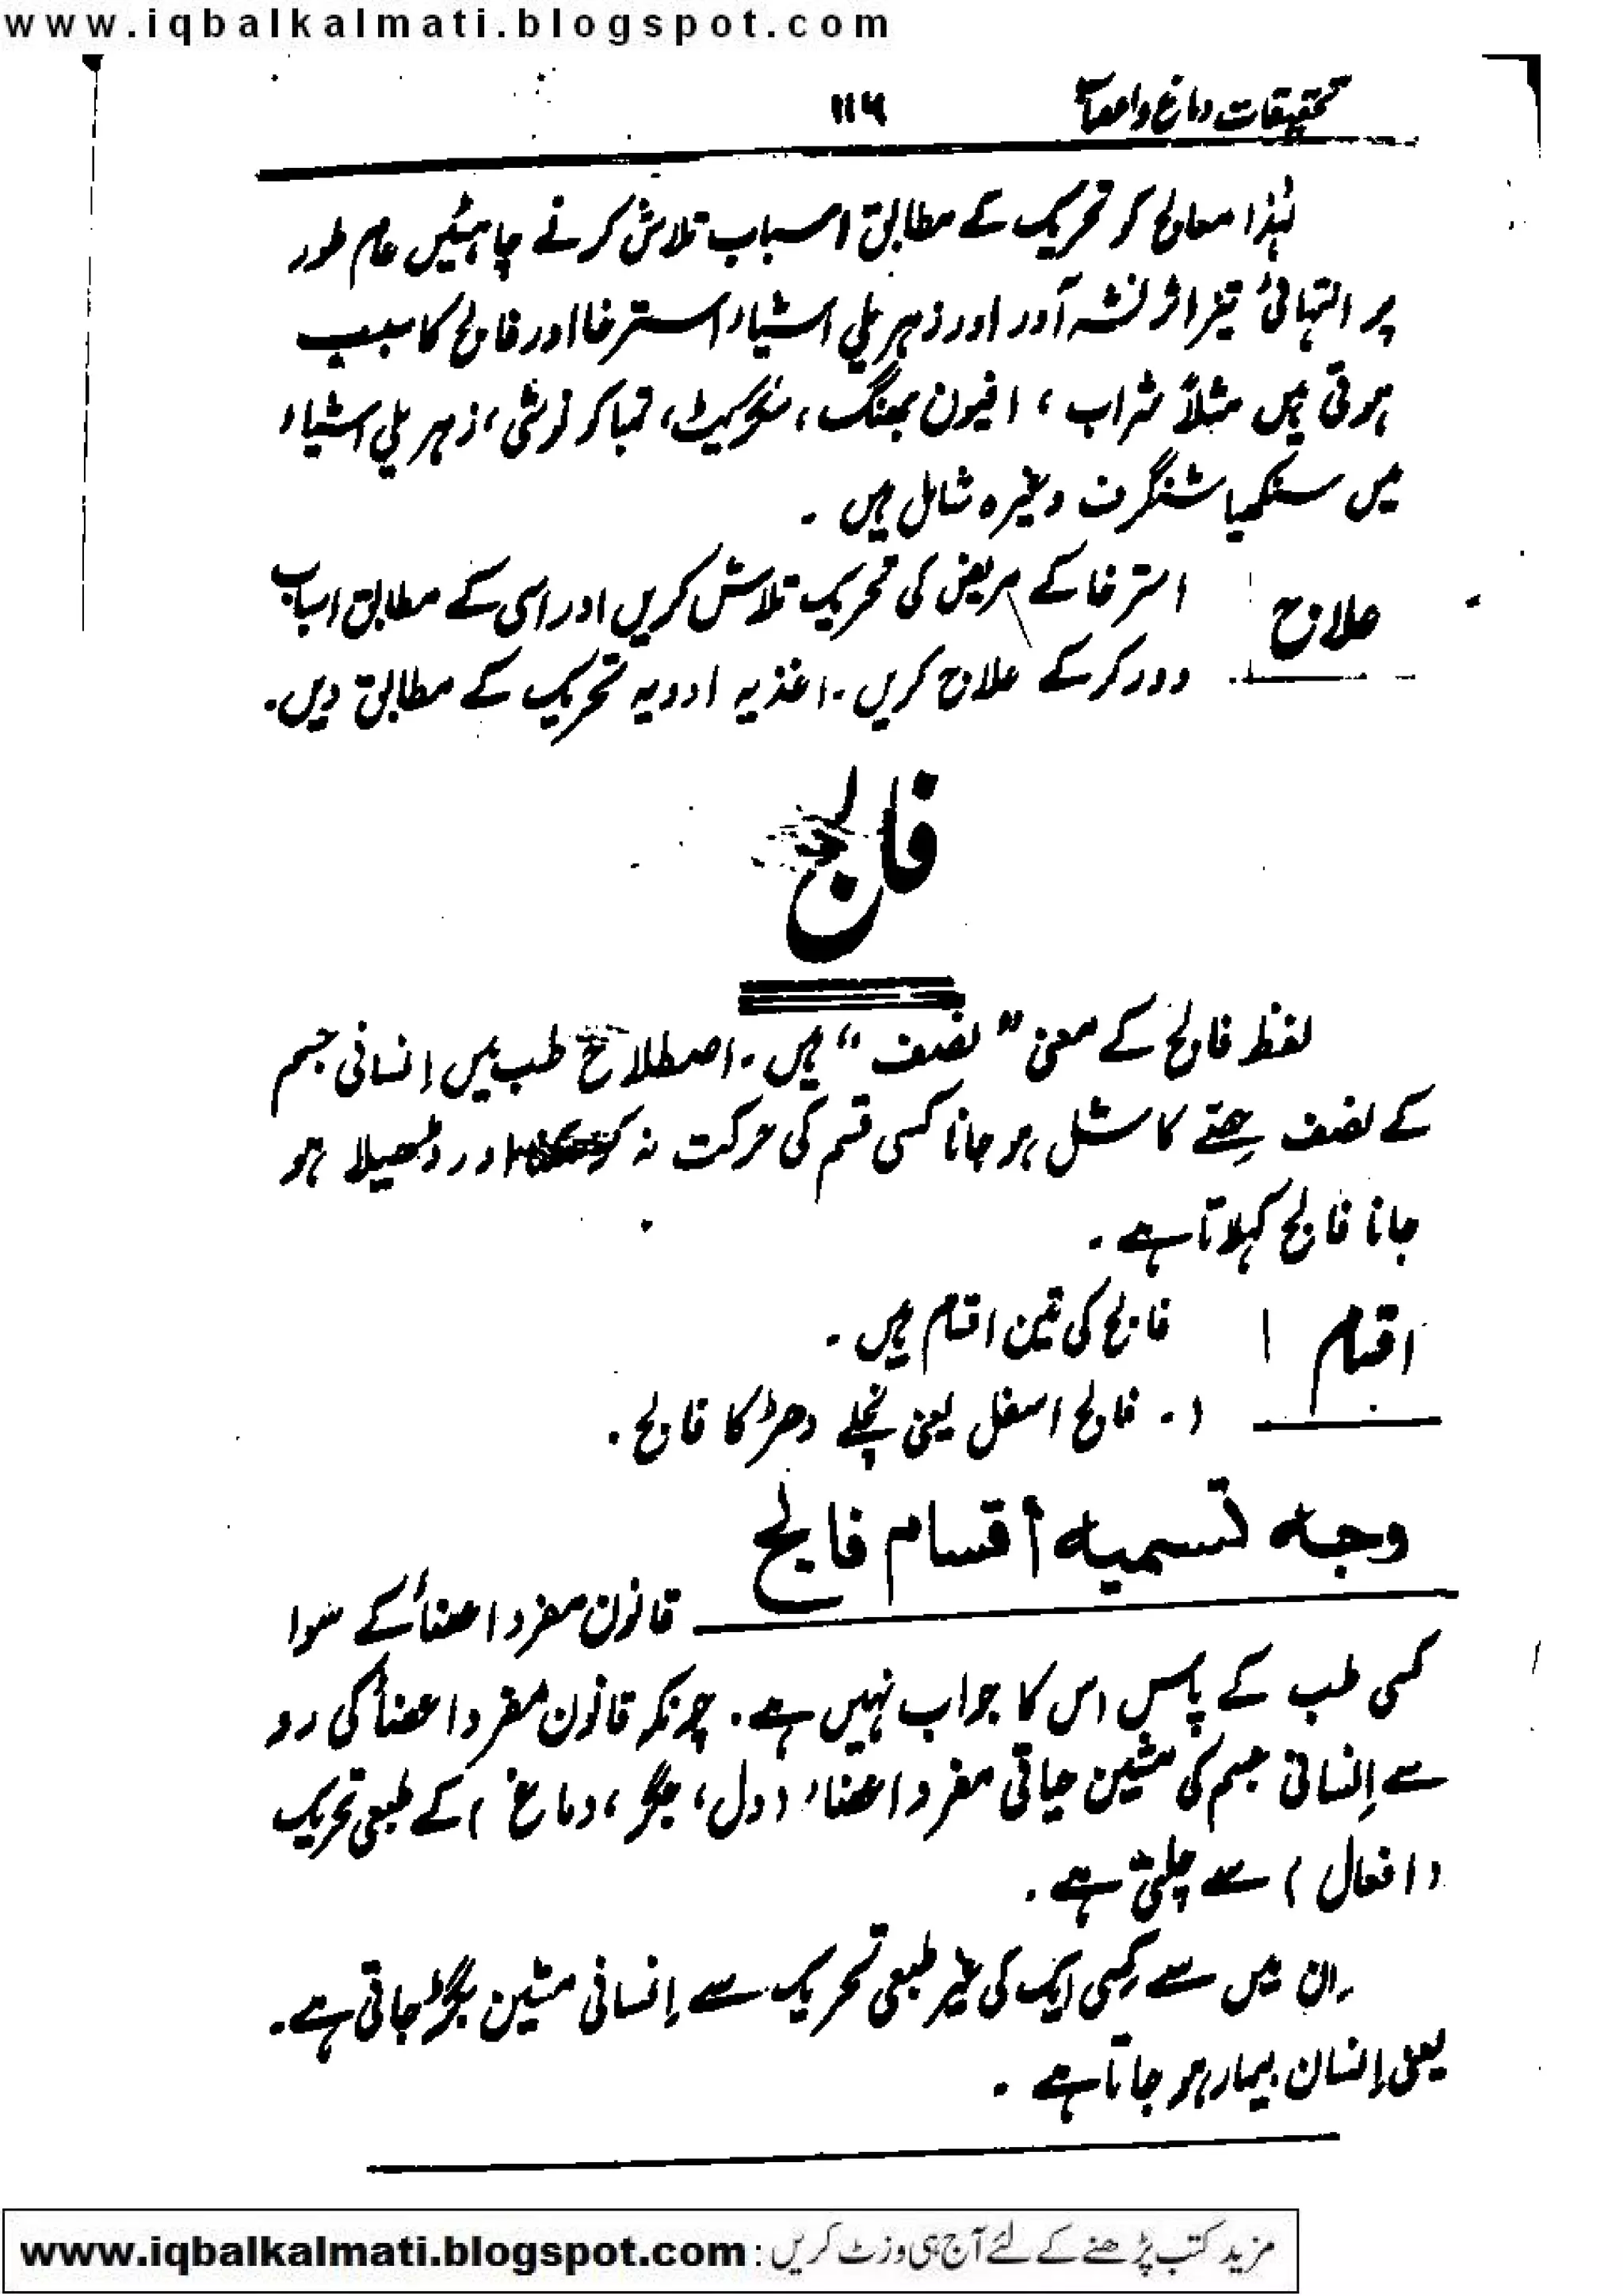 www.iqbalkalmati.blogspot.com
تحقیقات دماغ و اعصاب ۱۱۶
لہٰذا معالج کو تحریک کے مطابق اسباب تلاش کرنے چاہئیں عام طور
پر انتہائی تیز اثر نشہ آور اور زہریلی اشیاء استرخا اور فالج کا سبب
ہوتی ہیں مثلاً شراب، افیون بھنگ، سگریٹ، تمباکو نوشی، زہریلی اشیاء
میں سنکھیا شنگرف وغیرہ شامل ہیں۔
علاج استرخا کے مریض کی تحریک تلاش کریں اور اسی کے مطابق اسباب
دور کرکے علاج کریں۔ اغذیہ ادویہ تحریک کے مطابق دیں۔
فالج
لفظ فالج کے معنی "نصف" ہیں۔ اصطلاح طب میں اِنسانی جسم
کے نصف حِصّے کا شل ہو جانا کسی قسم کی حرکت نہ اور ڈھیلا ہو
جانا فالج کہلاتا ہے۔
اقسام فالج کی تین اقسام ہیں۔
۱۔ فالج اسفل یعنی نچلے دھڑ کا فالج۔
وجہ تسمیہ أقسام فالج
قانون مفرد اعضأ کے سوا
کسی طب کے پاس اس کا جواب نہیں ہے۔ چونکہ قانون مفرد اعضأ کی رو
سے اِنسانی جسم کی مشین حیاتی مفرد اعضاء (دل، جگر، دماغ) کے طبعی تحریک
(افعال) سے چلتی ہے۔
اِن میں سے کِسی ایک کی غیر طبعی تحریک سے اِنسانی مشین بگڑ جاتی ہے۔
یعنی اِنسان بیمار ہو جاتا ہے۔
مزید کتب پڑھنے کے لئے آج ہی وزٹ کریں: www.iqbalkalmati.blogspot.com